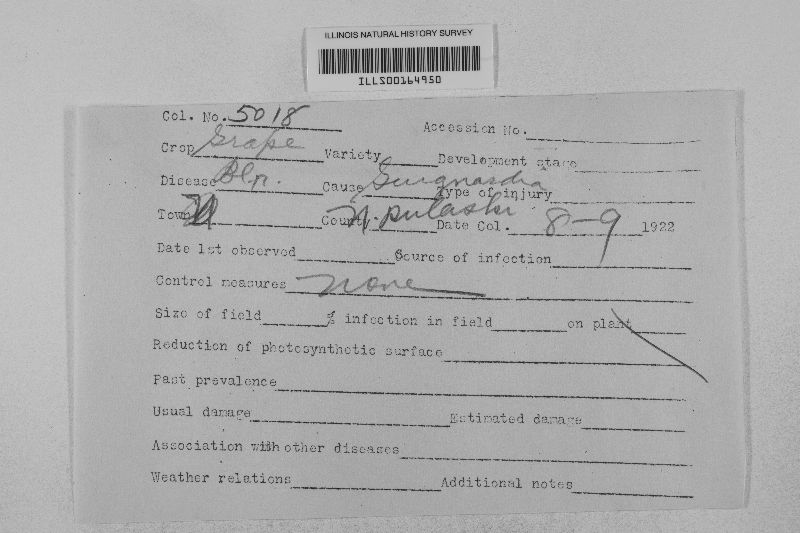 ILLINOIS NATURAL HISTORY SURVEY
ILLS00164950
Col. No. 5018 Accession No.
Crop Grape Variety Development stage
Disease Blr. Cause Guignardia Type of injury
Town County N. Pulaski Date Col. 8-9 1922
Date 1st observed Source of infection
Control measures None
Size of field % infection in field on plant
Reduction of photosynthetic surface
Past prevalence
Usual damage Estimated damage
Association with other diseases
Weather relations Additional notes